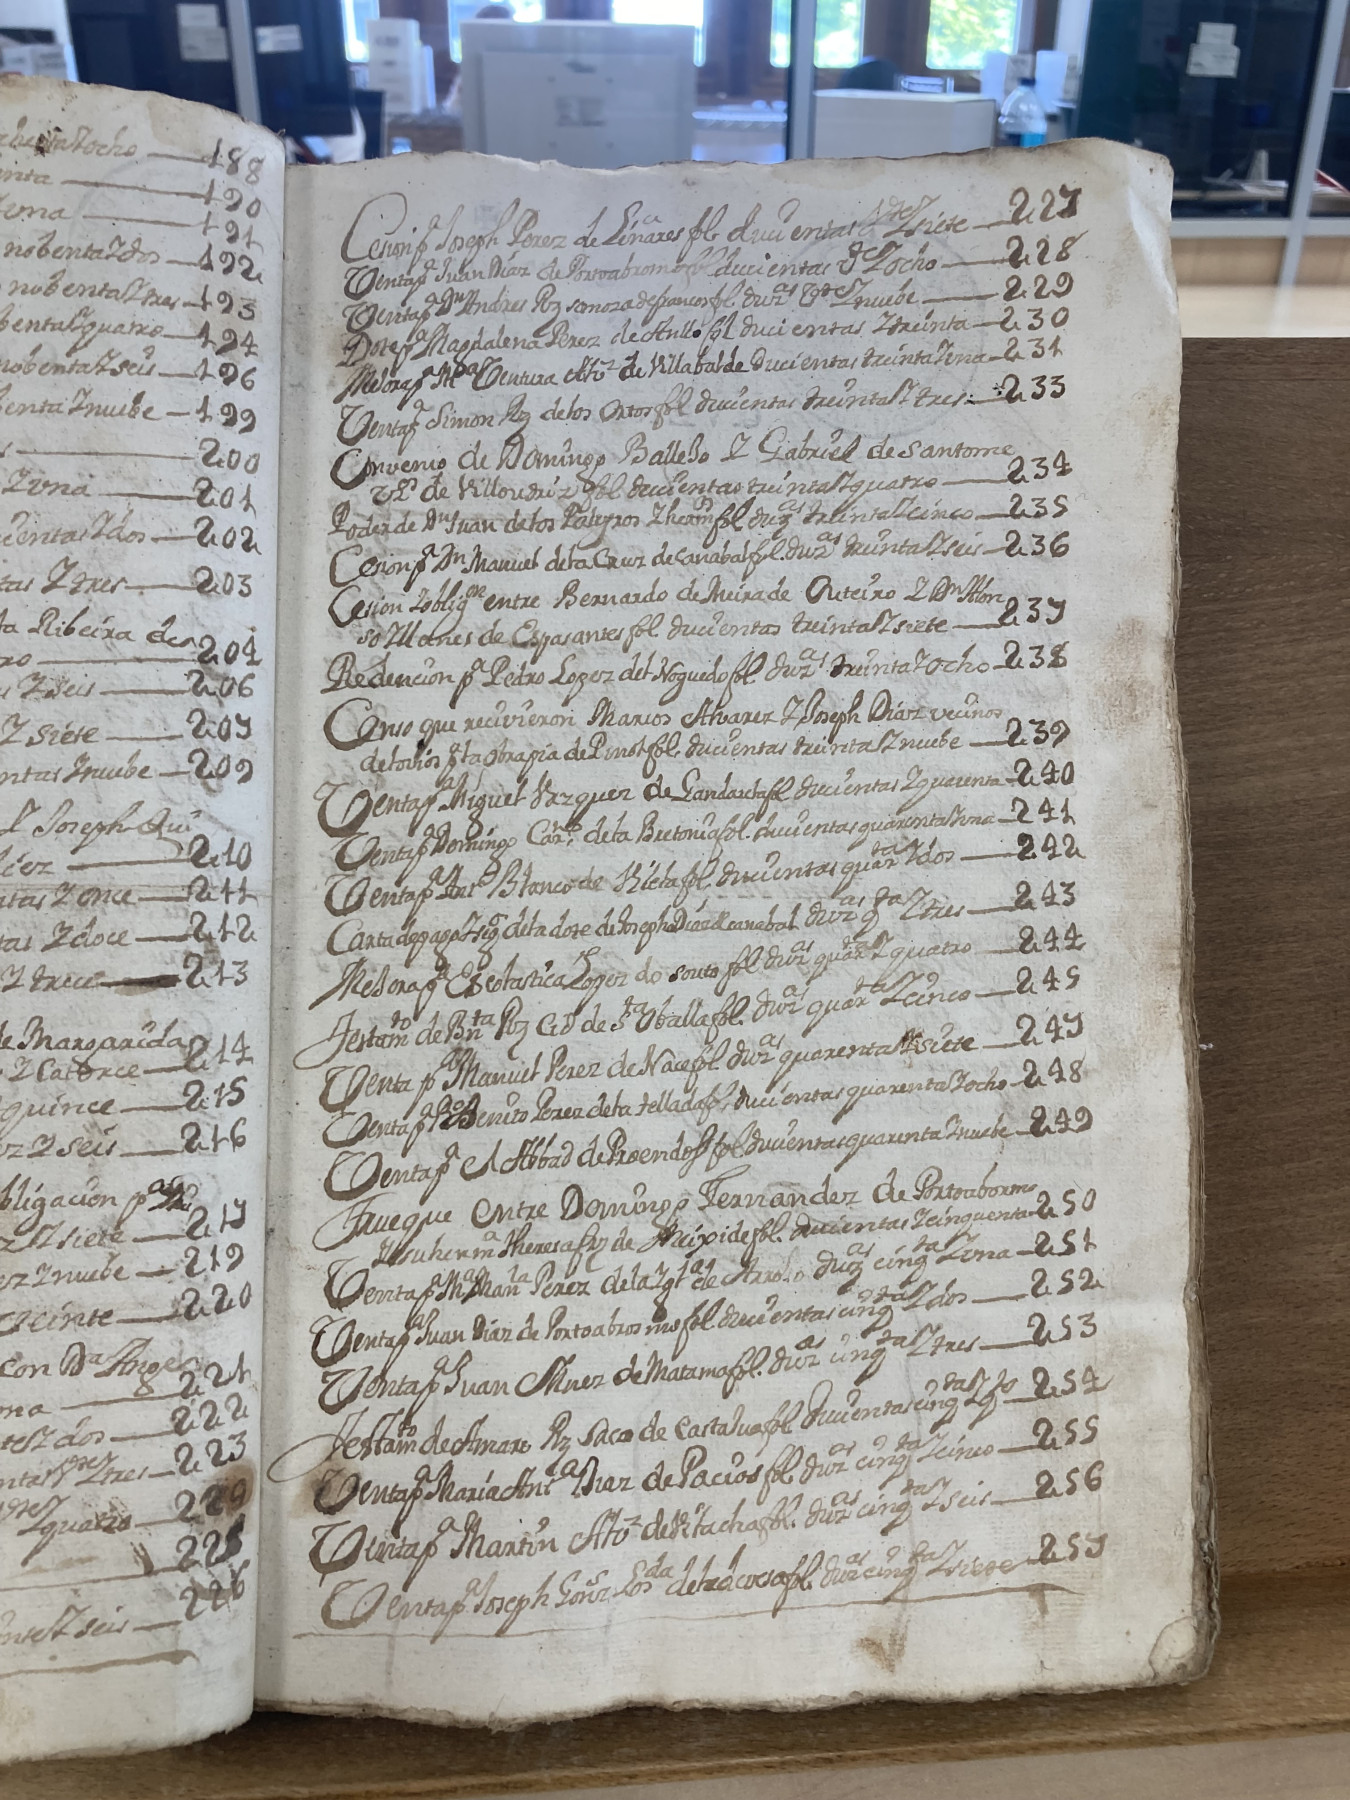 chentaYocho — 188
enta — 190
Yuna — 191
nobentaYdos — 192
nobentaYtres — 193
bentaYquatro — 194
nobentaYseis — 196
bentaYnuebe — 199
— 200
Yuna — 201
cientasYdos — 202
tas Y tres — 203
ta Ribeira de
ro — 204
Yseis — 206
Y siete — 207
entas Ynuebe — 209
Y Joseph Qui
— 210
ntas Y once — 211
tas Y doce — 212
Y trece — 213
de Margarida
Y Catorce — 214
quince — 215
Y seis — 216
bligacion pa
Ysiete — 217
Ynuebe — 219
veinte — 220
con Da Ange
ona — 221
tesY dos — 222
Ytres — 223
Yquatro — 224
225
inteY seis — 226
Cesion pa Joseph Perez de Linares fol. ducientas Yte Y siete — 227
Venta pa Juan Diaz de Portoabromo fol ducientas Yte Yocho — 228
Venta pa Dn Andres Rz somoza defrancos fol. duzas Yte Ynuebe — 229
Dote pa Magdalena Perez de Anllo fol ducientas Ytreinta — 230
Mejora pa Ma Ventura Alvz de Villabalde ducientas treintaYuna — 231
Venta pa Simon Rz delos Ortos fol ducientas treintaY tres — 233
Convenio de Domingo Balleso Y Gabriel de Santome
vos de Villoudriz fol ducientas treintaYquatro — 234
Poder de Dn Juan delos Palryros Yherm fol duzas treintaYcinco — 235
Cesion pa Dn Manuel dela Cruz de Canabal fol. duzas treintaYseis — 236
Cesion Yobligon entre Bernardo de Meira de Outeiro Y Dn Alon
so Yllanes de Espasantes fol ducientas treintaYsiete — 237
Redencion pa Pedro Lopez del Noguedo fol. duzas treintaYocho — 238
Censo que recivieron Marcos Alvarez Y Joseph Diaz vecinos
pa la obrapia de Pinol fol. ducientas treintaYnuebe — 239
Venta pa Miguel Vazquez de Gandarela fol ducientas Yquarenta — 240
Venta pa Domingo Carro dela Bretona fol. ducientas quarentaYuna — 241
Venta pa Anto Blanco de Vilela fol. ducientas quarta Ydos — 242
Carta depago Yrzo dela dote de Joseph Diaz de canabal duzas qta Ytres — 243
Mejora pa Escolastica Lopez do Souto fol duzas quarta Yquatro — 244
Testamto de Bnta Rz Cid de Sta Oballa fol. duzas quarta Ycinco — 245
Venta pa Manuel Perez de Nace fol duzas quarentaYsiete — 247
Venta pa Benito Perez dela tellada fol. ducientas quarentaYocho — 248
Venta pa el Abbad de Proendos fol ducientas quarenta Ynuebe — 249
Trueque entre Domingo Fernandez de Portoabormo
Ysuherma Theresa frz de Areixide fol. ducientas Ycinquenta — 250
Venta pa Ma Manla Perez dela Ygla de Arrojo duzas cinqta Yuna — 251
Venta pa Juan Diaz de Portoabromo fol ducientas cinqta Ydos — 252
Venta pa Juan Nunez de Matama fol. duzas cinqta Ytres — 253
Testamto de Amaro Rz Saco de Castaliva fol. ducientas cinqta Yqo — 254
Venta pa Maria Anta Diaz de Pacios fol duzas cinqta Ycinco — 255
Venta pa Martin Alvz de Vilacha fol. duzas cinqta Yseis — 256
Venta pa Joseph Gonz Losda de fol. duzas cinqta Ysiete — 257